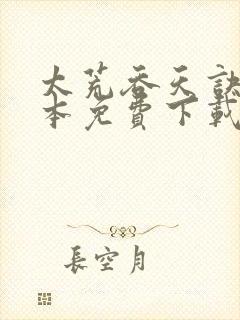 大荒吞天訣
本免費下載
長空月